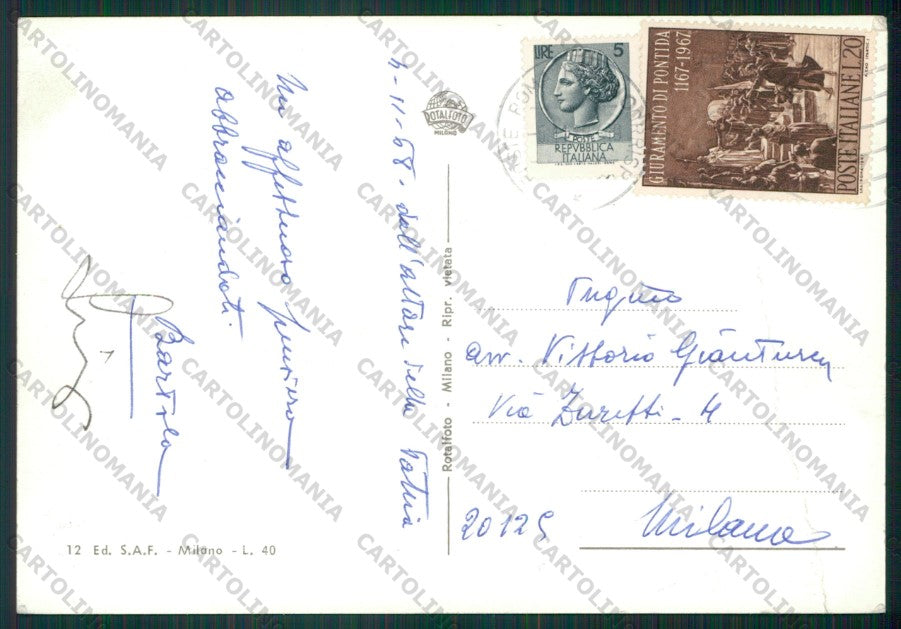 4-11-68. dall'altare della Patria
Un affettuoso pensiero
abbracciandoti.
Bartolo
ROTALFOTO
MILANO
LIRE 5
POSTE
REPVBBLICA
ITALIANA
GIURAMENTO DI PONTIDA
1167-1967
POSTE ITALIANE L.20
Rotalfoto - Milano - Ripr. vietata
avv. Vittorio Gianturco
Via Zuretti - 4
20125 Milano
12 Ed. S.A.F. - Milano - L. 40
CARTOLINOMANIA